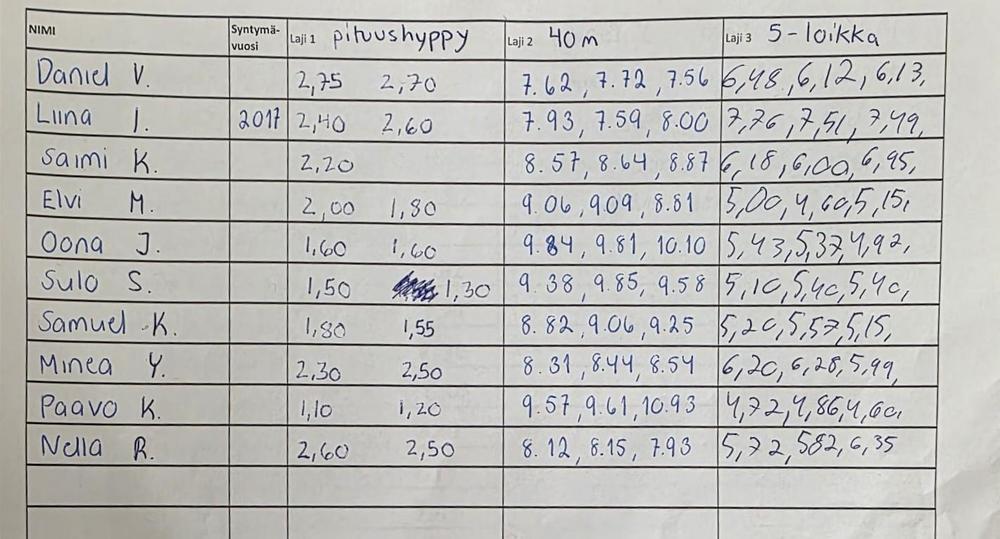 NIMI Syntymä-vuosi Laji 1 pituushyppy Laji 2 40 m Laji 3 5-loikka
Daniel V. 2,75 2,70 7.62, 7.72, 7.56 6,48, 6,12, 6,13,
Liina I. 2017 2,40 2,60 7.93, 7.59, 8.00 7,76, 7,51, 7,49,
Saimi K. 2,20 8.57, 8.64, 8.87 6,18, 6,00, 6,95,
Elvi M. 2,00 1,80 9.06, 9.09, 8.81 5,00, 4,60, 5,15,
Oona J. 1,60 1,60 9.84, 9.81, 10.10 5,43, 5,37, 4,92,
Sulo S. 1,50 1,30 9.38, 9.85, 9.58 5,10, 5,40, 5,40,
Samuel K. 1,80 1,55 8.82, 9.06, 9.25 5,20, 5,57, 5,15,
Minea Y. 2,30 2,50 8.31, 8.44, 8.54 6,20, 6,28, 5,99,
Paavo K. 1,10 1,20 9.57, 9.61, 10.93 4,72, 4,86, 4,60,
Nella R. 2,60 2,50 8.12, 8.15, 7.93 5,72, 582, 6,35